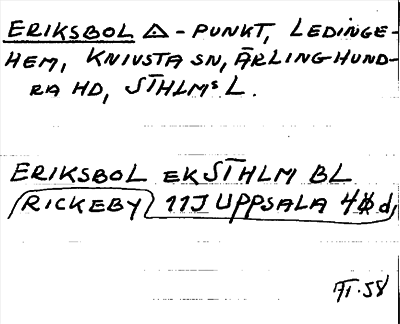 ERIKSBOL △ - PUNKT, LEDINGE-
HEM, KNIVSTA SN, ÄRLINGHUND-
RA HD, STHLMS L.
ERIKSBOL EK STHLM BL
RICKEBY 11J UPPSALA 4 d,
58